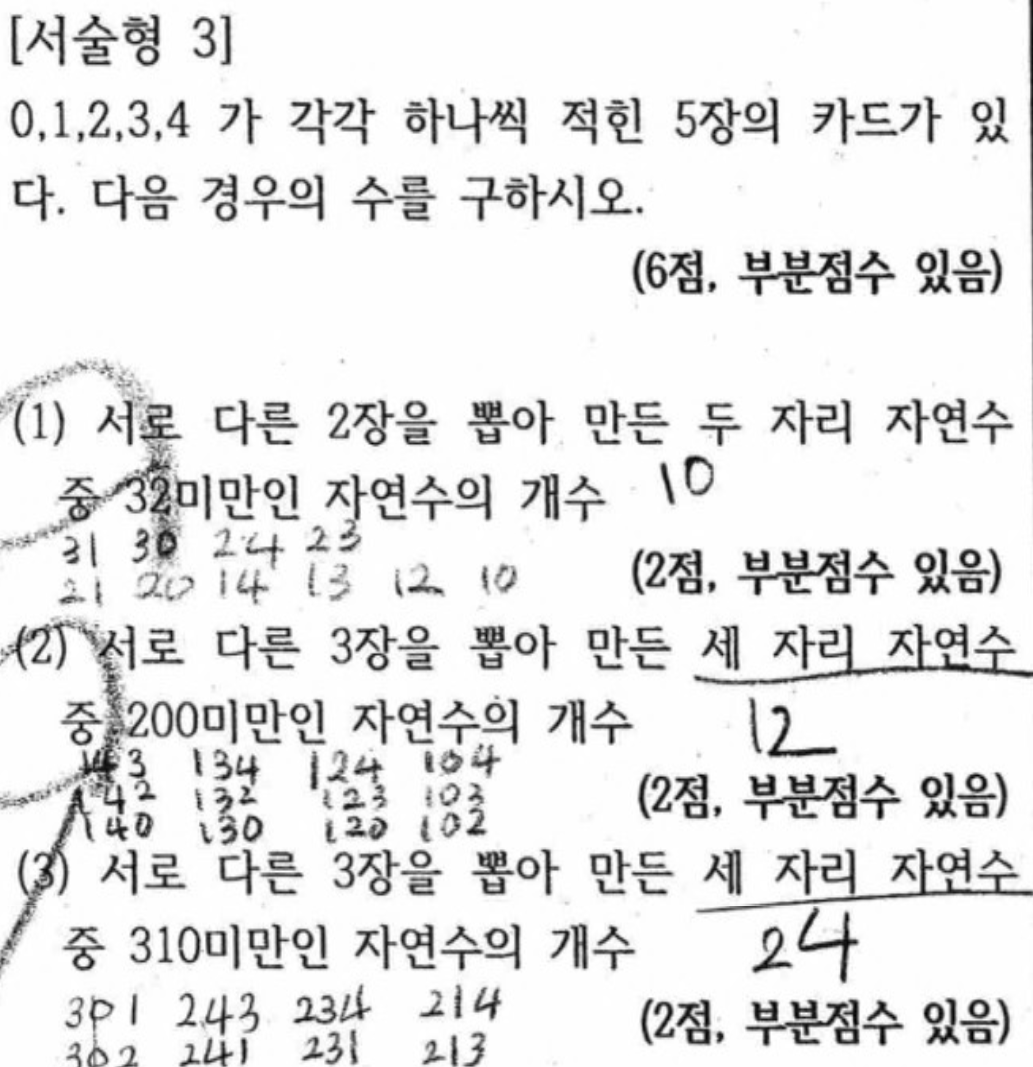 [서술형 3]
0,1,2,3,4 가 각각 하나씩 적힌 5장의 카드가 있
다. 다음 경우의 수를 구하시오.
(6점, 부분점수 있음)
(1) 서로 다른 2장을 뽑아 만든 두 자리 자연수
중 32미만인 자연수의 개수 10
31 30 24 23
21 20 14 13 12 10
(2점, 부분점수 있음)
(2) 서로 다른 3장을 뽑아 만든 세 자리 자연수
중 200미만인 자연수의 개수 12
143 134 124 104
142 132 123 103
140 130 120 102
(2점, 부분점수 있음)
(3) 서로 다른 3장을 뽑아 만든 세 자리 자연수
중 310미만인 자연수의 개수 24
301 243 234 214
302 241 231 213
(2점, 부분점수 있음)